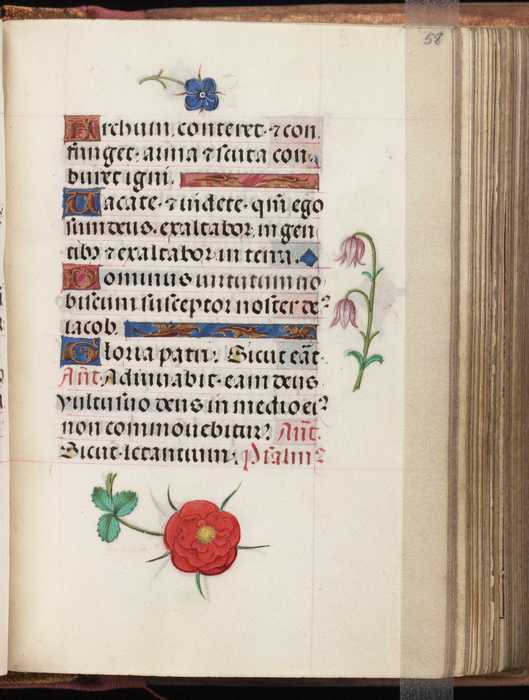 58
Archum conteret · ⁊ con
fringet · arma ⁊ scuta con
buret igni.
Vacate · ⁊ videte · qm̄ ego
sum deus · exaltabor in gen
tibꝫ ⁊ exaltabor in terra.
Dominus virtutum no
biscum susceptor noster deꝰ
iacob.
Gloria patri. Sicut erāt.
Ant. Adiuvabit · eam deus
vultu suo deus in medio eiꝰ
non commovebitur. Ant.
Sicut · letantium. Psalmꝰ